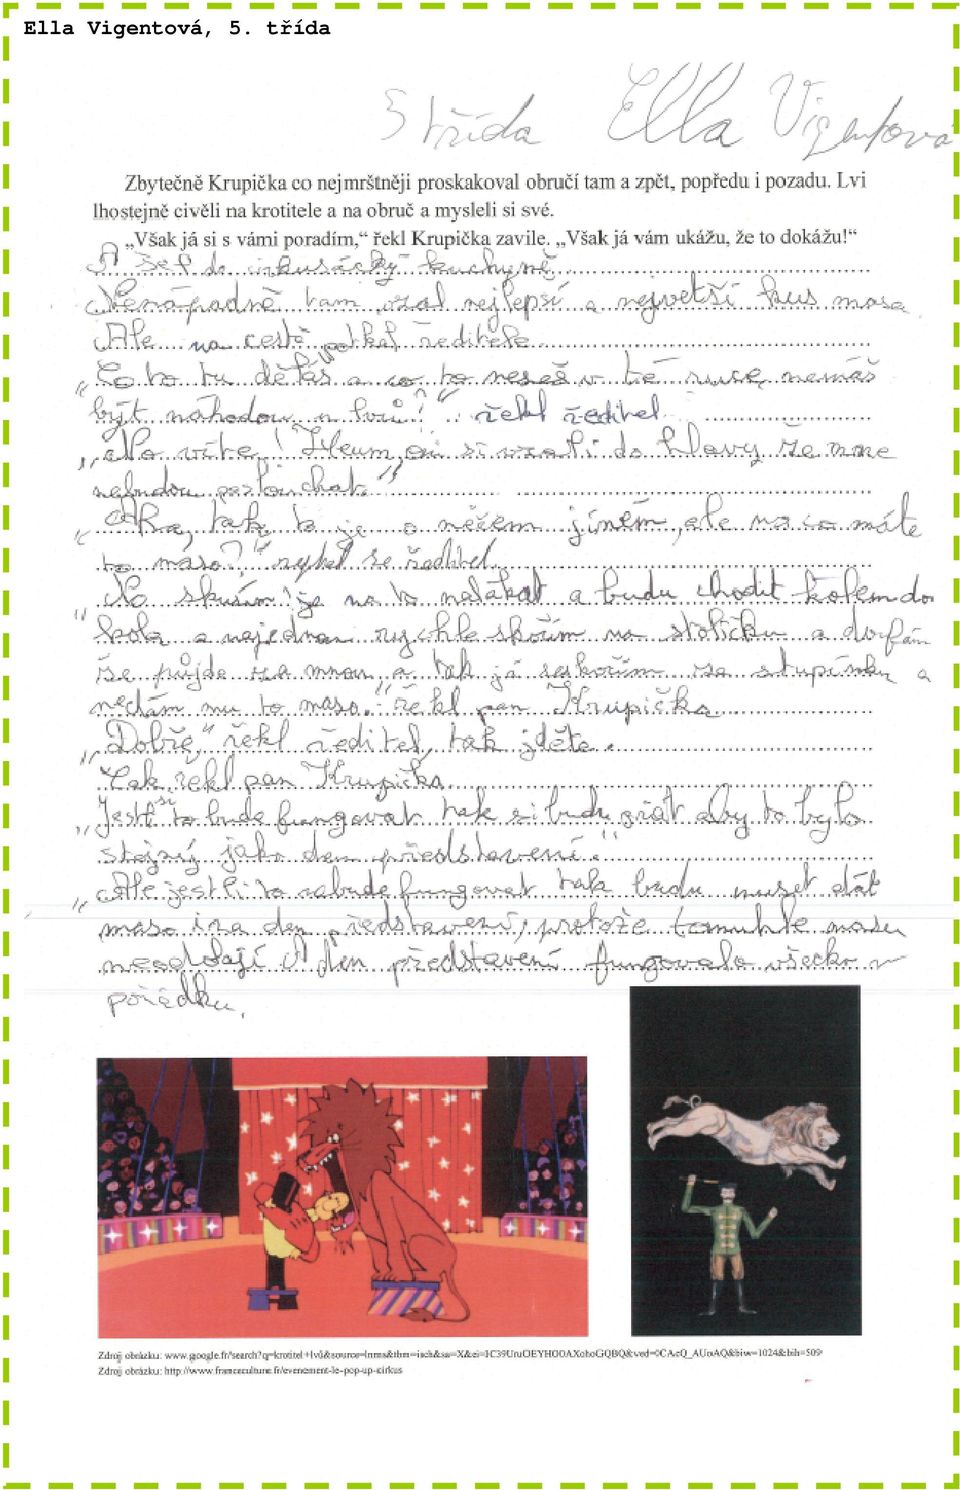 Ella Vigentová, 5. třída
5 třída Ella Vigentová
Zbytečně Krupička co nejmrštněji proskakoval obručí tam a zpět, popředu i pozadu. Lvi
lhostejně civěli na krotitele a na obruč a mysleli si své.
„Však já si s vámi poradím,“ řekl Krupička zavile. „Však já vám ukážu, že to dokážu!“
A šel do cirkusácký kuchyně
Nenápadně tam vzal nejlepší a největší kus masa
Ale na cestě potkal ředitele
„Co to tu děláš a co to neseš v té ruce nemáš
být náhodou u lvů?“ řekl ředitel
„No víte! oni si vzali do hlavy že mne
nebudou poslouchat“
„Aha, tak to je o něčem jiném, ale na co máte
to maso?“ ředitel
„No skusím je na to nalákat a budu chodit kolem do
kola a najednou rychle skočím na stoličku a doufám
že půjde za mnou a tak já seskočím ze stupínku a
nedám mu to maso.“ řekl pan Krupička
„Dobře,“ řekl ředitel, tak jděte.
Tak řekl pan Krupička.
„Jestli to bude fungovat tak si budu přát aby to bylo
stejný jako den představení.“
„Ale jestli to nebude fungovat tak budu muset dát
maso i na den představení, protože tomuhle masu
neodolají V den představení fungovalo všecko v
pořádku.
Zdroj obrázku: www.google.fr/search?q=krotitel+lvů&source=lnms&tbm=isch&sa=X&ei=
Zdroj obrázku: http://www.franceculture.fr/evenement-le-pop-up-cirkus